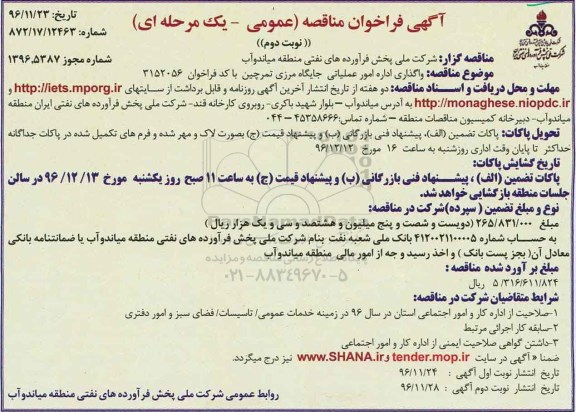 آگهی فراخوان مناقصه (عمومی - یک مرحله ای)
(( نوبت دوم ))
تاریخ: ۹۶/۱۱/۲۳
شماره: ۸۷۲/۱۷/۱۲۴۶۳
شماره مجوز ۱۳۹۶.۵۳۸۷
مناقصه گزار: شرکت ملی پخش فرآورده های نفتی منطقه میاندوآب
موضوع مناقصه: واگذاری اداره امور عملیاتی جایگاه مرزی تمرچین با کد فراخوان ۳۱۵۲۰۵۶
مهلت و محل دریافت و اسناد مناقصه: دو هفته از تاریخ انتشار آخرین آگهی روزنامه و قابل برداشت از سایتهای http://iets.mporg.ir و
http://monaghese.niopdc.ir به آدرس میاندوآب – بلوار شهید باکری- روبروی کارخانه قند- شرکت ملی پخش فرآورده های نفتی ایران منطقه
میاندوآب- دبیرخانه کمیسیون مناقصات منطقه – شماره تماس: ۴۵۳۵۸۶۶۶-۰۴۴
تحویل پاکات: پاکات تضمین (الف)، پیشنهاد فنی بازرگانی (ب) و پیشنهاد قیمت (ج) بصورت لاک و مهر شده و فرم های تکمیل شده در پاکات جداگانه
حداکثر تا پایان وقت اداری روزشنبه به ساعت ۱۶ مورخ ۹۶/۱۲/۱۲
تاریخ گشایش پاکات:
پاکات تضمین (الف) ، پیشنهاد فنی بازرگانی (ب) و پیشنهاد قیمت (ج) به ساعت ۱۱ صبح روز یکشنبه مورخ ۹۶/۱۲/۱۳ در سالن
جلسات منطقه بازگشایی خواهد شد.
نوع و مبلغ تضمین ( سپرده)شرکت در مناقصه:
مبلغ ۲۶۵/۸۳۱/۰۰۰ (دویست و شصت و پنج میلیون و هشتصد و سی و یک هزار ریال )
به حساب شماره ۴۱۲۰۰۲۱۱۰۰۰۵ بانک ملی شعبه نفت بنام شرکت ملی پخش فرآورده های نفتی منطقه میاندوآب یا ضمانتنامه بانکی
معادل آن( بجز پست بانک ) و اخذ رسید و جه از امور مالی منطقه میاندوآب
مبلغ بر آورد شده مناقصه :
۵/۳۱۶/۶۱۱/۸۲۴ ریال
شرایط متقاضیان شرکت در مناقصه:
۱-صلاحیت از اداره کار و امور اجتماعی استان در سال ۹۶ در زمینه خدمات عمومی/ تاسیسات/ فضای سبز و امور دفتری
۲-سابقه کار اجرائی مرتبط
۳-داشتن گواهی صلاحیت ایمنی از اداره کار و امور اجتماعی
ضمنا « آگهی در سایت tender.mop.ir و www.SHANA.ir نیز درج میگردد.
تاریخ انتشار نوبت اول آگهی : ۹۶/۱۱/۲۴
تاریخ انتشار نوبت دوم آگهی : ۹۶/۱۱/۲۸
روابط عمومی شرکت ملی پخش فرآورده های نفتی منطقه میاندوآب
۰۲۱-۸۸۳۴۹۶۷۰-۵